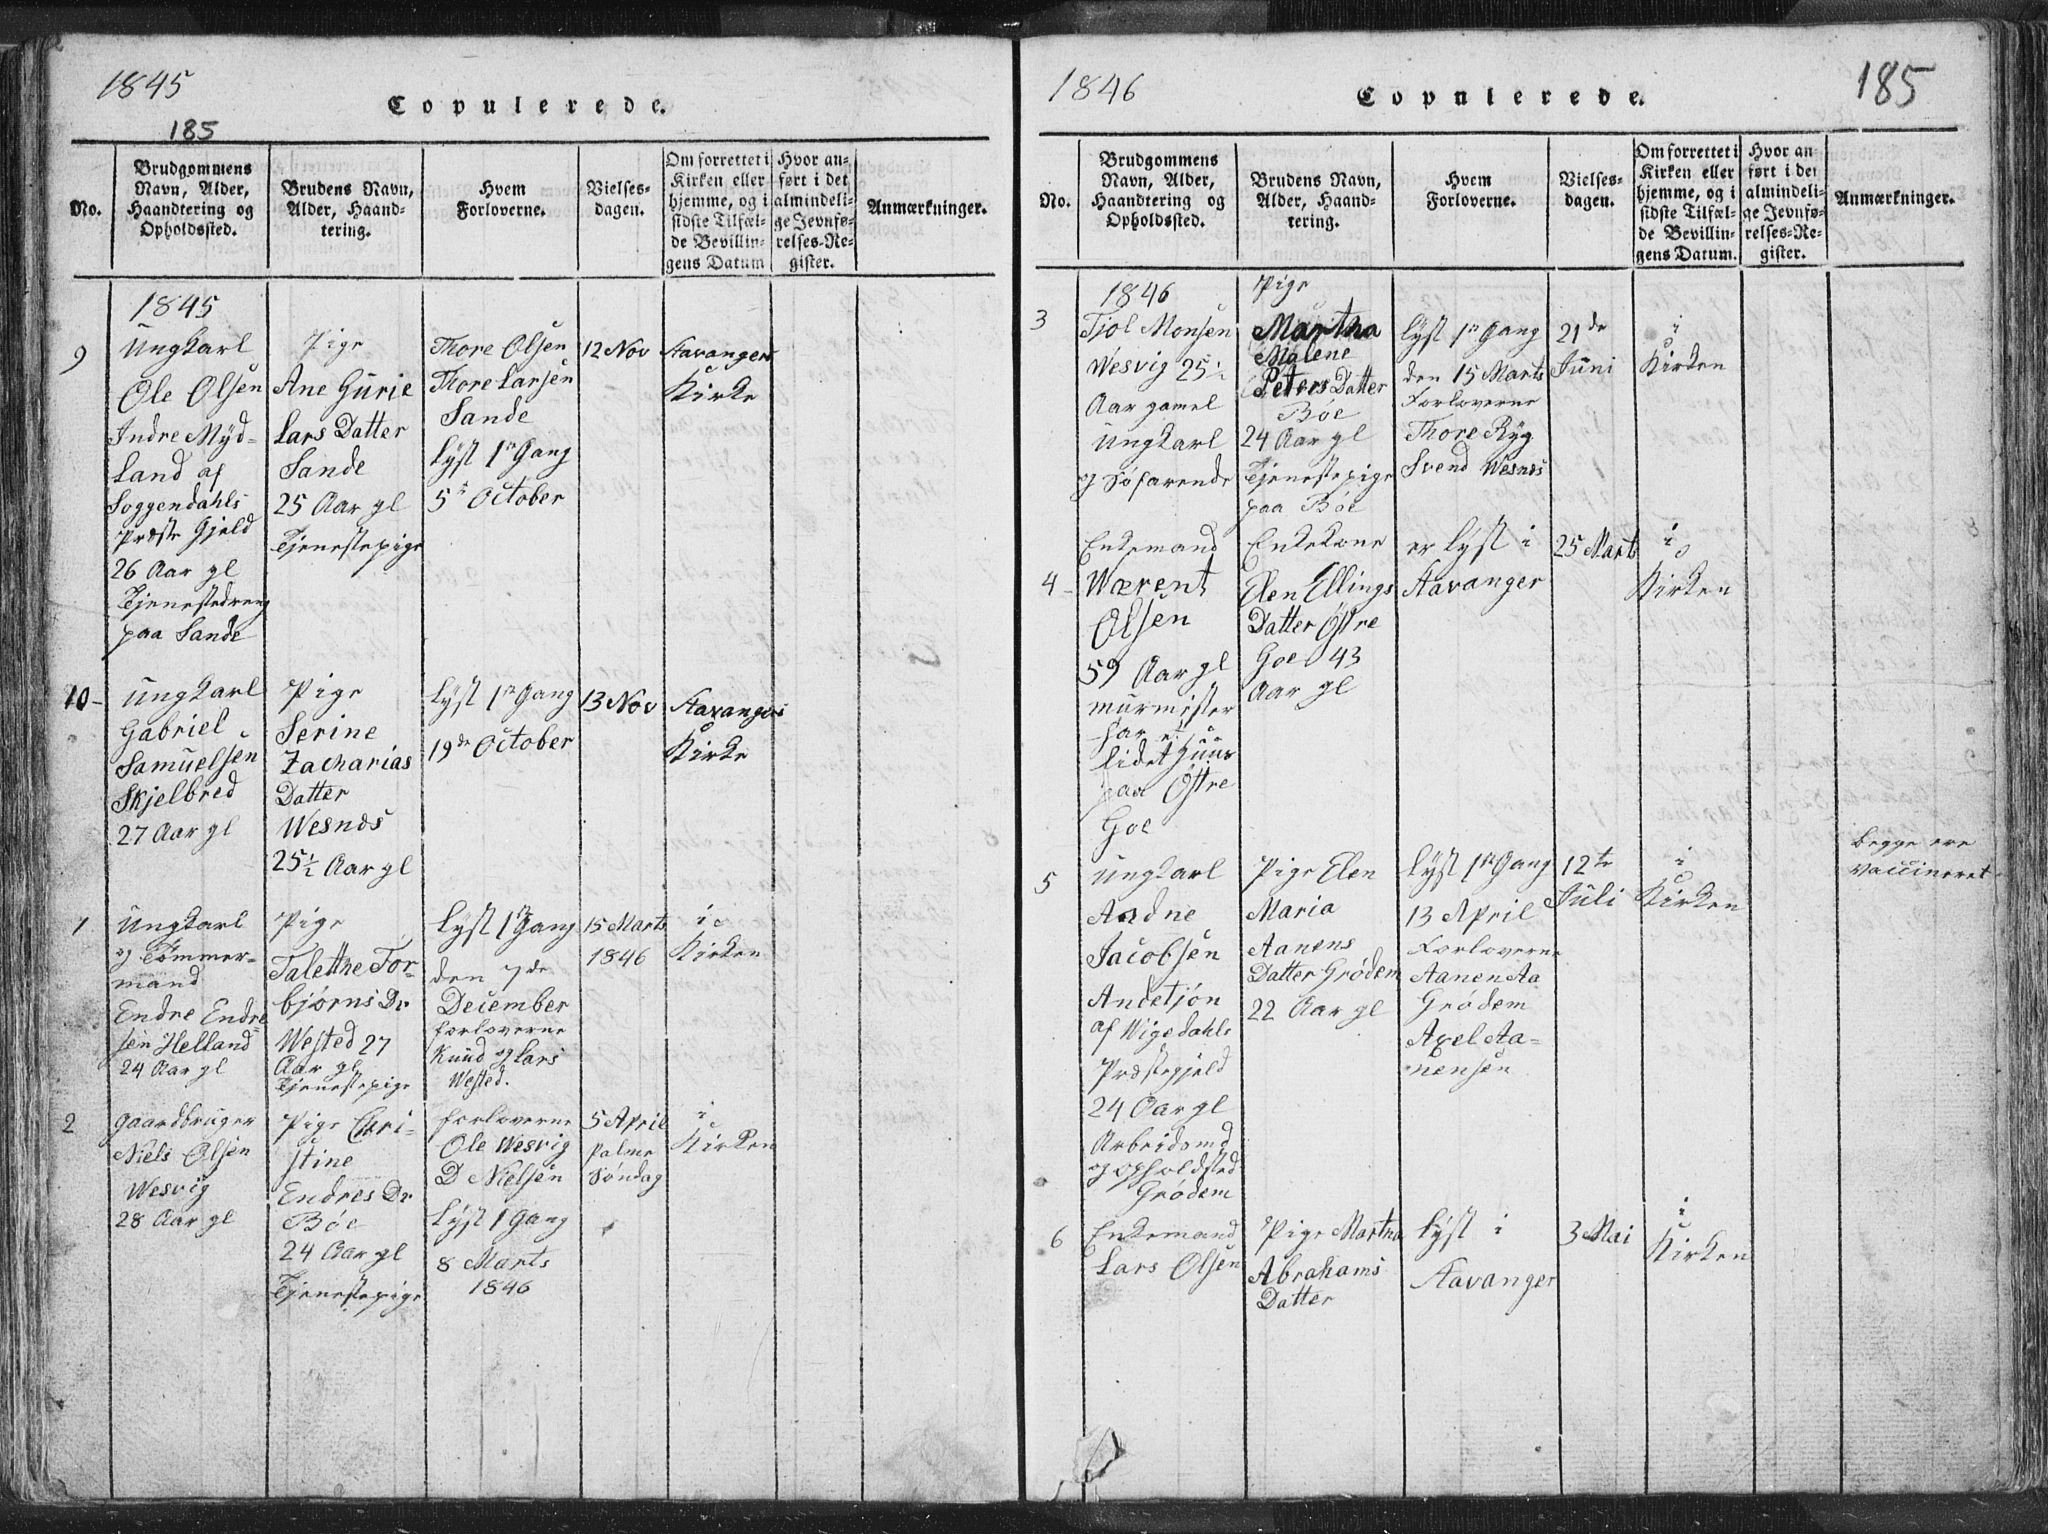 1845
Copulerede.
185
No.
Brudgommens
Navn, Alder,
Haandtering og
Opholdssted.
Brudens Navn,
Alder, Haand-
tering.
Hvem
Forloverne.
Vielses-
dagen.
Om forrettet i
Kirken eller
hjemme, og i
sidste Tilfæl-
de Bevillin-
gens Datum
Hvor an-
ført i det
almindeli-
ge Jevnfø-
relses-Re-
gister.
Anmærkninger.
1845
9
Ungkarl
Ole Olsen
Indre Myd-
land af
Soggendahls
Præste Gjeld
26 Aar gl
Tjenestedreng
paa Sande
Pige
Ane Gurie
Lars Datter
Sande
25 Aar gl
Tjenestepige
Thore Olsen
Thore Larsen
Sande
Lyst 1ste Gang
5te October
12 Nov
Stavangers
Kirke
10
Ungkarl
Gabriel
Samuelsen
Skjelbred
27 Aar gl
Pige
Serine
Zacharias
Datter
Wesnæs
25½ Aar gl
Lyst 1ste Gang
19de October
13 Nov
Stavangers
Kirke
1
Ungkarl
og Tømmer-
mand
Endre Endre-
sen Helland
24 Aar gl
Pige
Talethe Tor-
bjørns Dr
Wested 27
Aar gl
Tjenestepige
Lyst 1ste Gang
den 7de
December
Forloverne
Knud og Lars
Wested.
15 Marts
1846
i
Kirken
2
Gaardbruger
Niels Olsen
Wesvig
28 Aar gl
Pige Chri-
stine
Endres Dr
Bøe
24 Aar gl
Tjenestepige
Forloverne
Ole Wesvig
D Nielsen
Lyst 1 Gang
8 Marts
1846
5 April
Palme
Søndag
i
Kirken
1846
Copulerede.
185
No.
Brudgommens
Navn, Alder,
Haandtering og
Opholdssted.
Brudens Navn,
Alder, Haand-
tering.
Hvem
Forloverne.
Vielses-
dagen.
Om forrettet i
Kirken eller
hjemme, og i
sidste Tilfæl-
de Bevillin-
gens Datum.
Hvor an-
ført i det
almindeli-
ge Jevnfø-
relses-Re-
gister.
Anmærkninger.
1846
3
Tjøl Monsen
Wesvig 25½
Aar gamel
Ungkarl
og Søfarende
Pige
Martha
Malene
Peters Datter
Bøe
24 Aar gl
Tjenestepige
paa Bøe
Lyst 1ste Gang
den 15 Marts
Forloverne
Thore Ryg
Svend Wesnæs
21de
Juni
i
Kirken
4
Enkemand
Wærent
Olsen
59 Aar gl
murmester
har et
lidet Huus
paa Østre
Goe
Enkekone
Elen Ellings
Datter Østre
Goe 43
Aar gl
er Lyst i
Stavanger
25 Marts
i
Kirken
5
Ungkarl
Andne
Jacobsen
Andetjøn
af Wigedahls
Præstegjeld
24 Aar gl
Arbeidsmd
og opholdsted
Grødem
Pige Elen
Maria
Aanens
Datter Grødem
22 Aar gl
Lyst 1ste Gang
13 April
Forloverne
Aanen Aa
Grødem
Axel Aa-
nensen
12te
Juli
i
Kirken
Begge ere
vaccineret
6
Enkemand
Lars Olsen
Pige Martha
Abrahams
Datter
Lyst i
Stavanger
3 Mai
i
Kirken